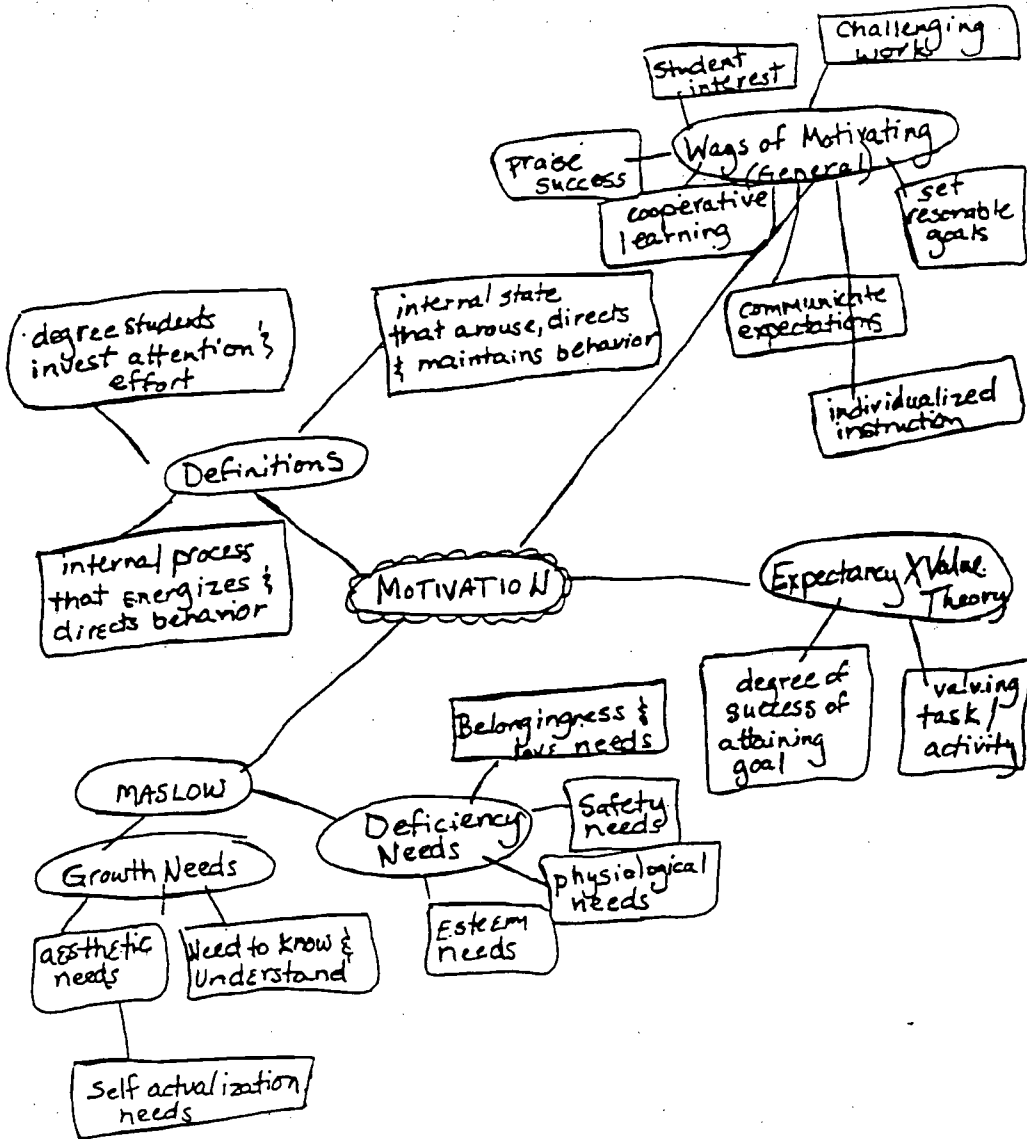 Challenging
work
Student
interest
Ways of Motivating
(General)
praise
success
cooperative
learning
set
resonable
goals
communicate
expectations
individualized
instruction
degree students
invest attention &
effort
internal state
that arouse, directs
& maintains behavior
Definitions
internal process
that energizes &
directs behavior
MOTIVATION
Expectancy X Value
Theory
degree of
success of
attaining
goal
valuing
task/
activity
MASLOW
Belongingness &
love needs
Deficiency
Needs
Safety
needs
physiological
needs
Esteem
needs
Growth Needs
aesthetic
needs
Need to know &
Understand
Self actualization
needs